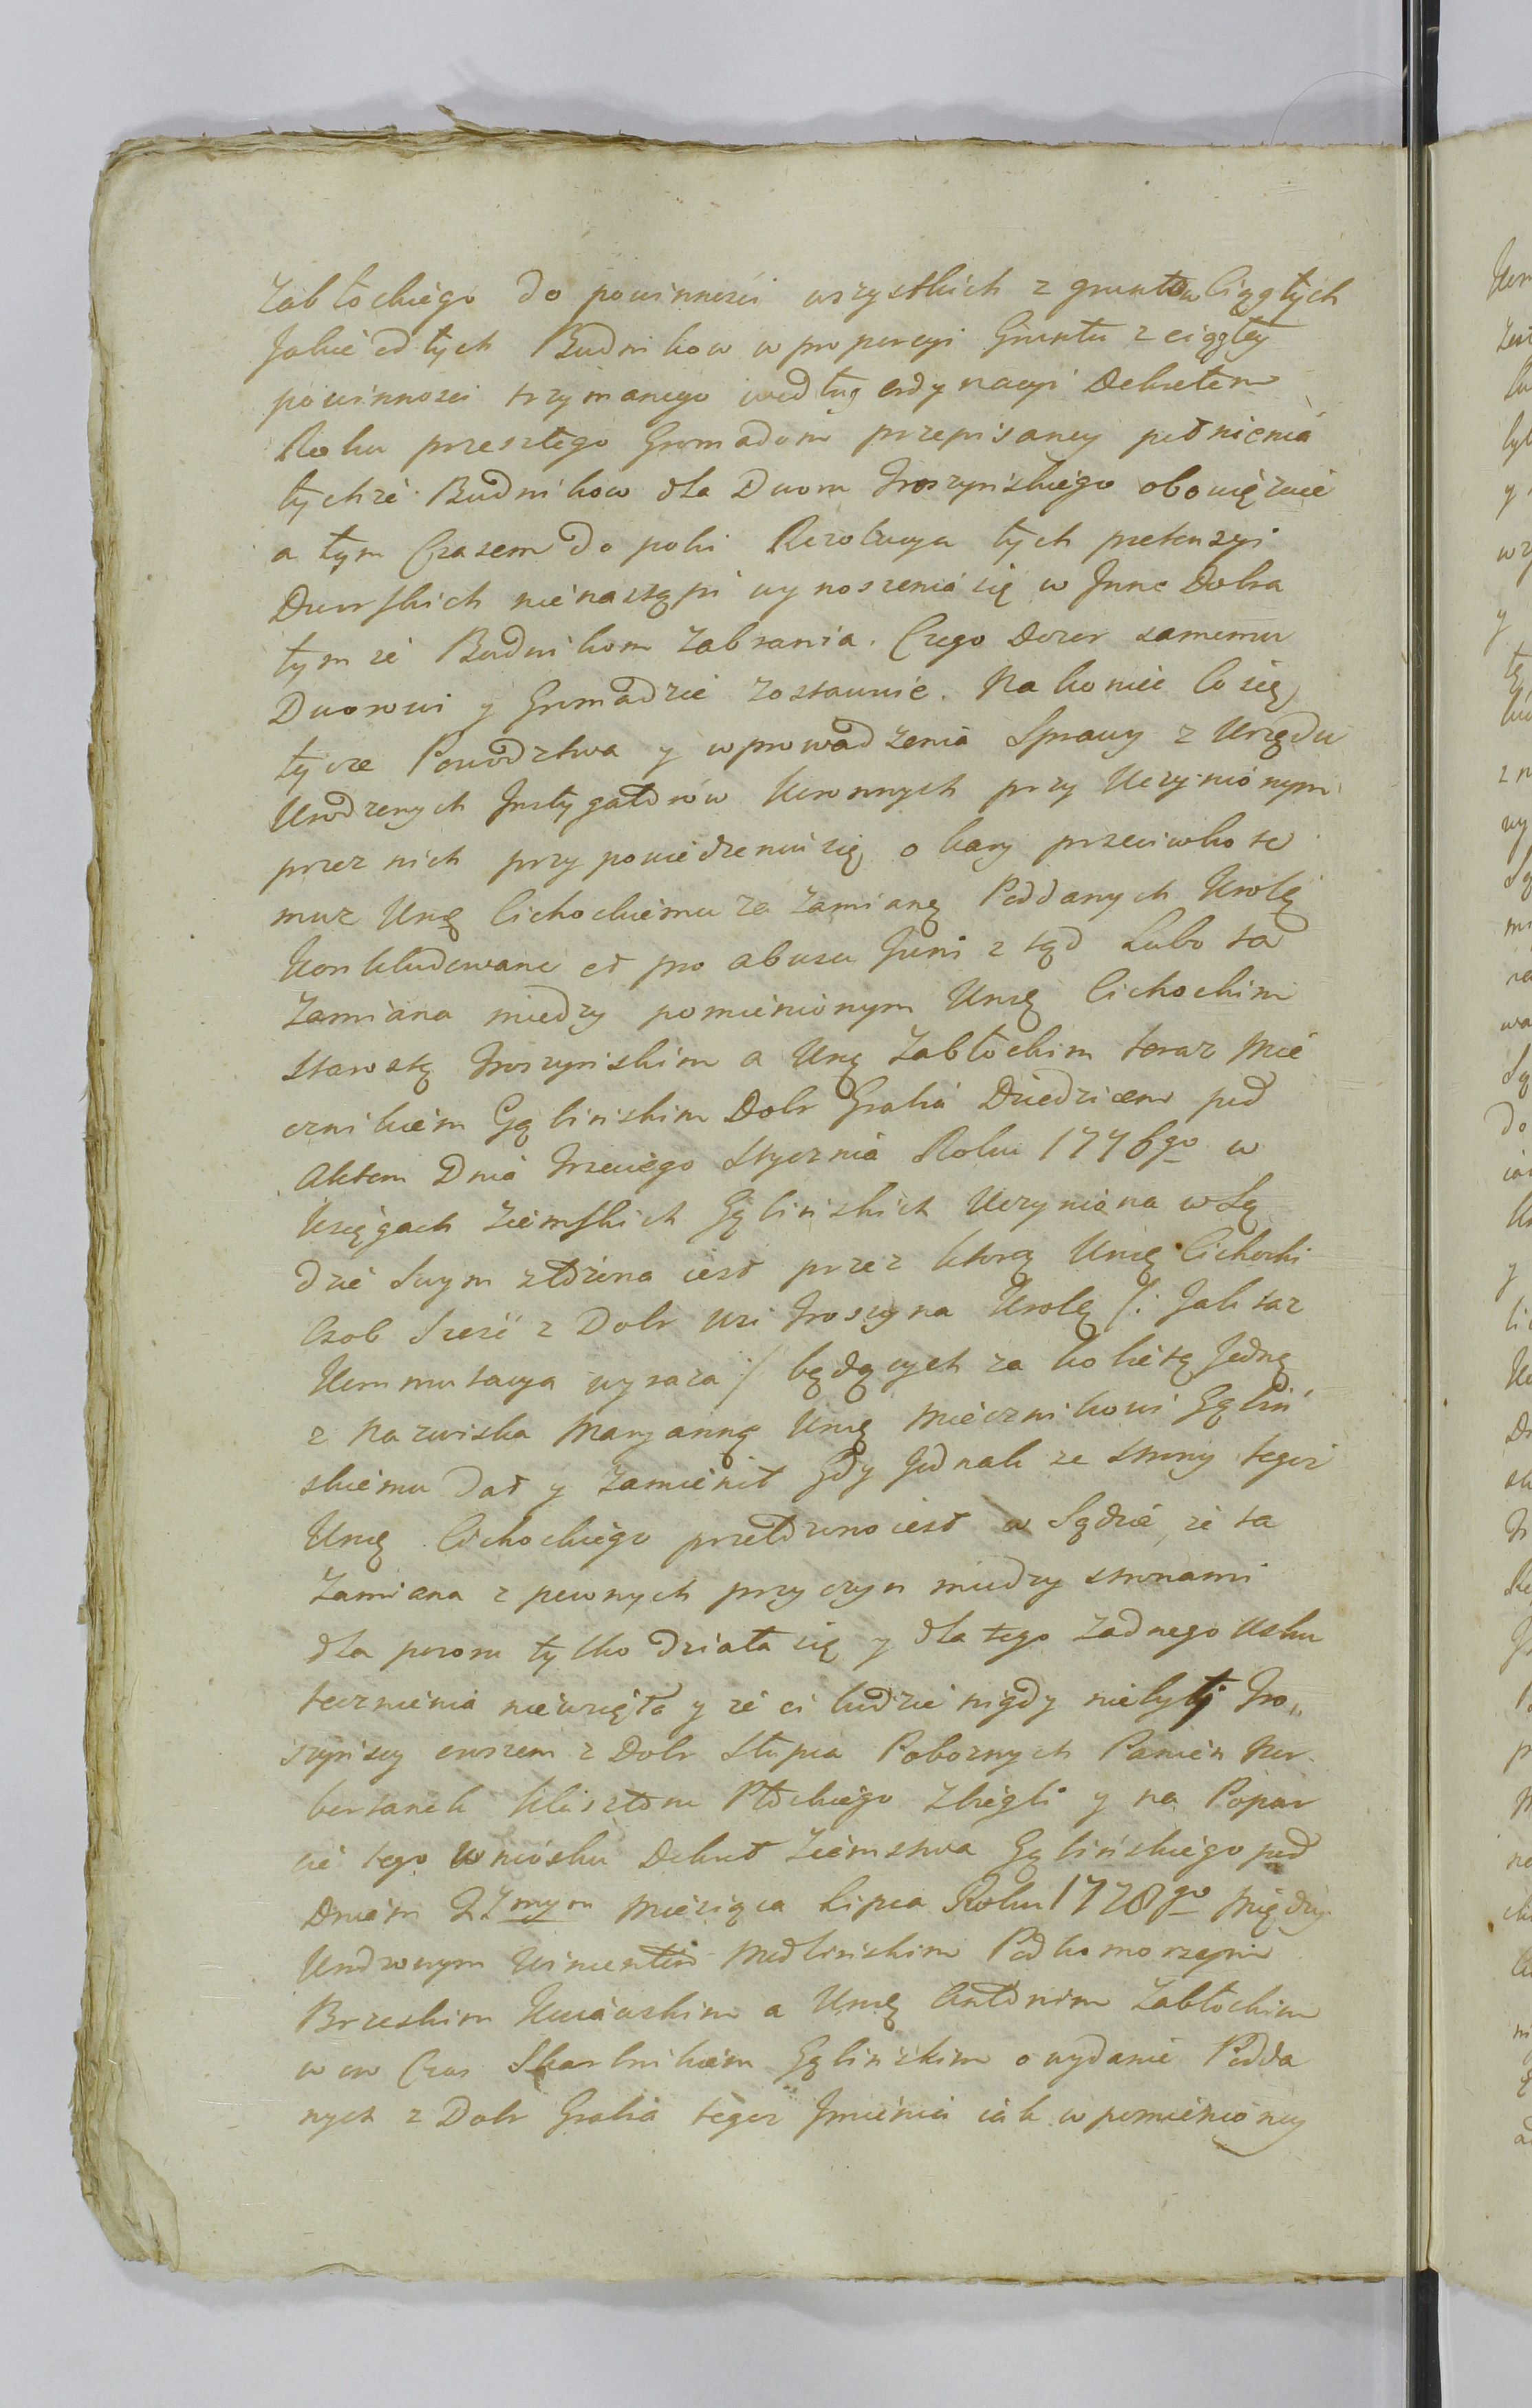 Zabłockiego do powinności wszystkich z gruntow Ciągłych
Jakie od tych Budnikow w proporcyi Gruntu z ciągłey
powinności trzymanego według ordynacyi Dekretem
Roku przeszłego Gromadom przepisaney pełnienia
tychże Budnikow dla Dworu Troszyńskiego obowięzuie
a tym Czasem do poki Rezolucya tych pretensyi
Dworskich nienastąpi wynoszenia się w Inne Dobra
tymże Budnikom Zabrania. Czego Dozor samemu
Dworowi y Gromadzie zostawuie. Nakoniec Co się
tycze Powodztwa y wprowadzenia Sprawy z Urzędu
Urodzonych Instygatorów Koronnych przy Uczynionym
przez nich przypowiedzeniu się o kary przeciwko te
muż Urę Cichockiemu za Zamianę Poddanych Krolę
Konkludowane et pro abusu Juris ztąd Lubo ta
Zamiana miedzy pomienionym Urę Cichockim
Starostą Troszyńskim a Urę Zabłockim teraz Mie
cznikiem Gąbińskim Dobr Grabia Dziedzicem pod
Aktem Dnia Trzeciego Stycznia Roku 1776go w
Xsięgach Ziemskich Gąbińskich Uczyniona w Są
dzie Swym złożona iest przez ktorą Urę Cichocki
Osob Sześć z Dobr wsi Troszyna Krolę /: Jak taż
Kommutacya wyraża / będących za kobietę Jednę
z Nazwiska Maryannę Urę Miecznikowi Gąbiń
skiemu Dał y Zamienił Gdy Jednak ze strony tegoż
Urę Cichockiego przełożono iest w Sądzie, że ta
Zamiana z pewnych przyczyn miedzy stronami
dla pozoru tylko działa się y dla tego żadnego Usku
tecznienia niewzięła y że ci ludzie nigdy niebyli Tro„
szyńscy owszem z Dobr Słupca Pobożnych Panien Nor
bertanek Klasztoru Płockiego Zbiegli y na Popar
cie tego Wniosku Dekret Ziemstwa Gąbińskiego pod
Dniem 27mym Miesiąca Lipca Roku 1778go Między
Urodzonym Wincentim Modlińskim Podkomorzym
Brzeskim Kuiawskim a Urę Antonim Zabłockim
w ow Czas Skarbnikiem Gąbińskim o wydanie Podda
nych z Dobr Grabia tegoż Jmienia iak w pomienioney